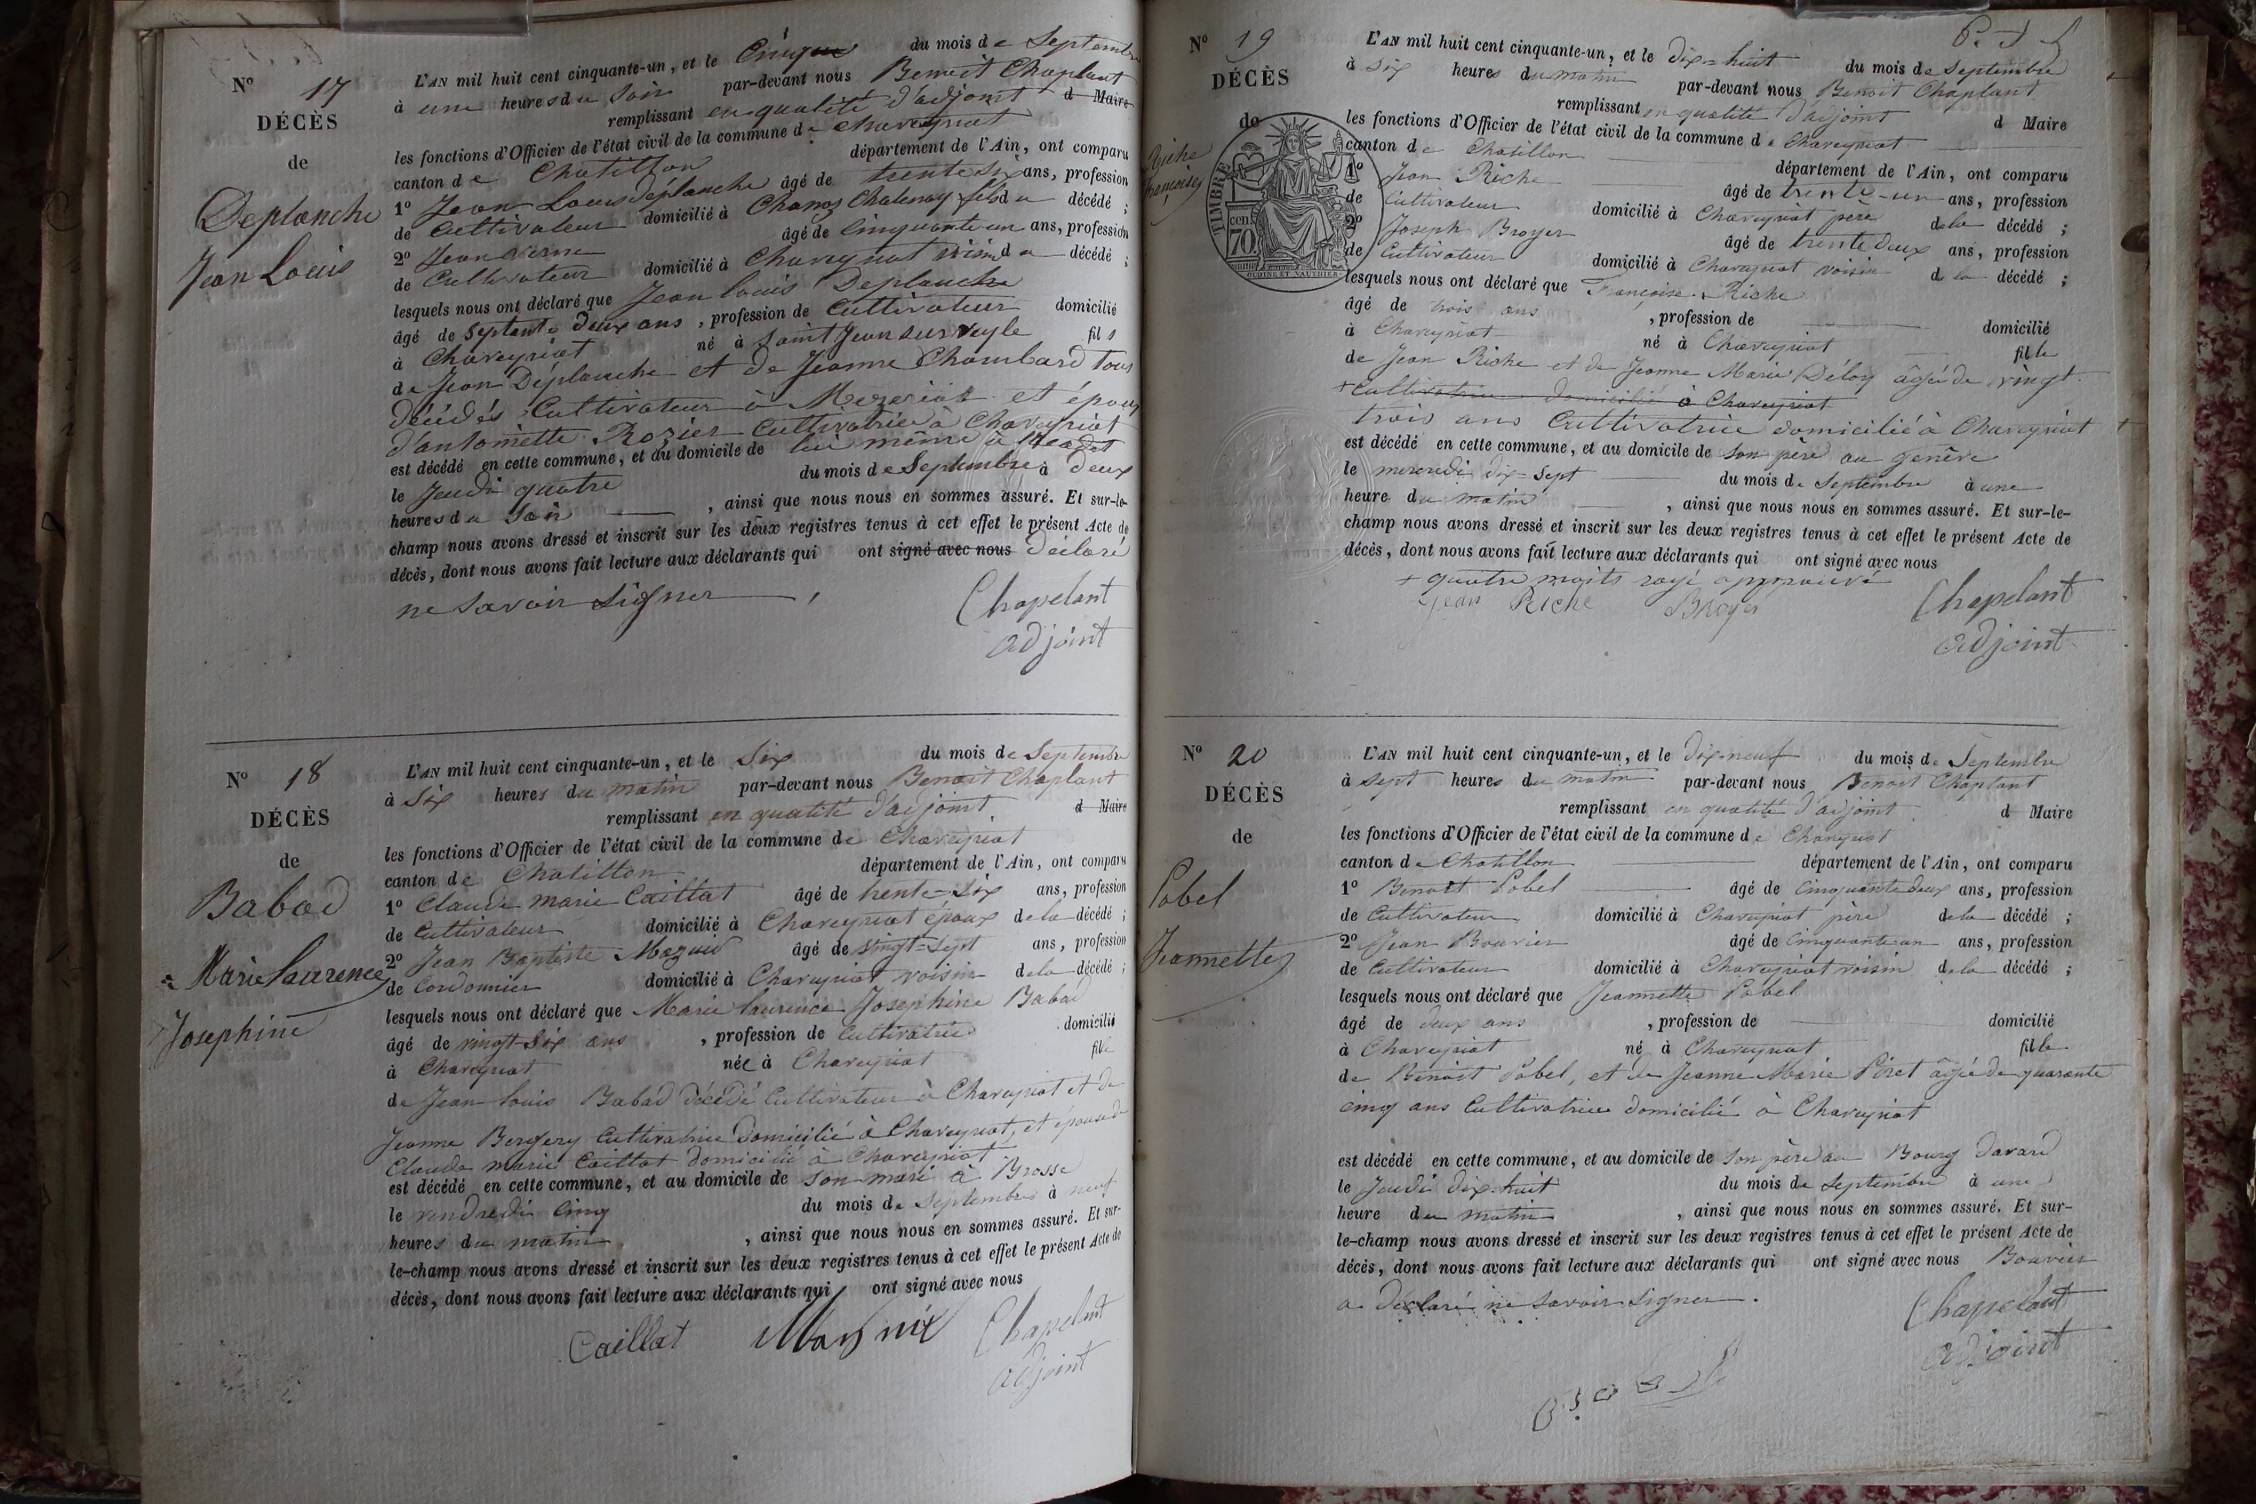 N° 17
DÉCÈS
de
Deplanche
Jean Louis
L'AN mil huit cent cinquante-un, et le Cinque du mois de Septembre
à une heures du Soir par-devant nous Benoit Chaplant
remplissant en qualité d'adjoint d Maire
les fonctions d'Officier de l'état civil de la commune de Chaveyriat
canton de Chatillon département de l'Ain, ont comparu
1° Jean Louis Deplanche âgé de trente Six ans, profession
de Cultivateur domicilié à Chanoz Chatenay fils du décédé ;
2° Jean Verne âgé de Cinquante un ans, profession
de Cultivateur domicilié à Chaveyriat voisin du décédé ;
lesquels nous ont déclaré que Jean Louis Deplanche
âgé de Septante deux ans, profession de Cultivateur domicilié
à Chaveyriat né à Saint Jean sur Veyle fils
de Jean Déplanche et de Jeanne Chambard tous
décédés Cultivateur à Mezeriat et époux
d'antoinette Rozier Cultivatrice à Chaveyriat
est décédé en cette commune, et au domicile de lui même à
le Jeudi quatre du mois de Septembre à deux
heures du Soir, ainsi que nous nous en sommes assuré. Et sur-le-
champ nous avons dressé et inscrit sur les deux registres tenus à cet effet le présent Acte de
décès, dont nous avons fait lecture aux déclarants qui ont signé avec nous déclaré
ne Savoir Signer
Chapelant
adjoint
N° 18
DÉCÈS
de
Babad
Marie Laurence
Josephine
L'AN mil huit cent cinquante-un, et le Six du mois de Septembre
à Six heures du matin par-devant nous Benoit Chaplant
remplissant en qualité d'adjoint d Maire
les fonctions d'Officier de l'état civil de la commune de Chaveyriat
canton de Chatillon département de l'Ain, ont comparu
1° Claude marie Caillat âgé de trente-Six ans, profession
de Cultivateur domicilié à Chaveyriat époux de la décédé ;
2° Jean Baptiste âgé de vingt-Sept ans, profession
de Cordonnier domicilié à Chaveyriat voisin de la décédé ;
lesquels nous ont déclaré que Marie laurence Josephine Babad
âgé de vingt-Six ans, profession de Cultivatrice domicilié
à Chaveyriat née à Chaveyriat fille
de Jean louis Babad décédé Cultivateur à Chaveyriat et de
Jeanne Bergery Cultivatrice domicilié à Chaveyriat, et épouse de
Claude marie Caillat domicilié à Chaveyriat
est décédé en cette commune, et au domicile de son mari à Brosse
le vendredi cinq du mois de Septembre à neuf
heures du matin, ainsi que nous nous en sommes assuré. Et sur-
le-champ nous avons dressé et inscrit sur les deux registres tenus à cet effet le présent Acte de
décès, dont nous avons fait lecture aux déclarants qui ont signé avec nous
Caillat Chapelant
adjoint
N° 19
DÉCÈS
de
Riche
françoise
TIMBRE
70 cen
L'AN mil huit cent cinquante-un, et le dix-huit du mois de Septembre
à Six heures du matin par-devant nous Benoit Chaplant
remplissant en qualité d'adjoint d Maire
les fonctions d'Officier de l'état civil de la commune de Chaveyriat
canton de Chatillon département de l'Ain, ont comparu
1° Jean Riche âgé de trente-un ans, profession
de Cultivateur domicilié à Chaveyriat père de la décédé ;
2° Joseph Broyer âgé de trente deux ans, profession
de Cultivateur domicilié à Chaveyriat voisin de la décédé ;
lesquels nous ont déclaré que Françoise Riche
âgé de trois ans, profession de domicilié
à Chaveyriat né à Chaveyriat fille
de Jean Riche et de Jeanne Marie Déloy âgée de vingt
+ Cultivatrice domicilié à Chaveyriat
trois ans Cultivatrice domicilié à Chaveyriat +
est décédé en cette commune, et au domicile de son père au genêve
le mercredi dix-Sept du mois de Septembre à une
heure du matin, ainsi que nous nous en sommes assuré. Et sur-le-
champ nous avons dressé et inscrit sur les deux registres tenus à cet effet le présent Acte de
décès, dont nous avons fait lecture aux déclarants qui ont signé avec nous
+ quatre moits rayé approuvé
Jean Riche Broyer Chapelant
adjoint
N° 20
DÉCÈS
de
Pobel
Jeannette
L'AN mil huit cent cinquante-un, et le dix-neuf du mois de Septembre
à Sept heures du matin par-devant nous Benoit Chaplant
remplissant en qualité d'adjoint d Maire
les fonctions d'Officier de l'état civil de la commune de Chaveyriat
canton de Chatillon département de l'Ain, ont comparu
1° Benoit Pobel âgé de Cinquante deux ans, profession
de Cultivateur domicilié à Chaveyriat père de la décédé ;
2° Jean Bouvier âgé de Cinquante un ans, profession
de Cultivateur domicilié à Chaveyriat voisin de la décédé ;
lesquels nous ont déclaré que Jeannette Pobel
âgé de deux ans, profession de domicilié
à Chaveyriat né à Chaveyriat fille
de Benoit Pobel, et de Jeanne Marie Piret âgée de quarante
cinq ans Cultivatrice domicilié à Chaveyriat
est décédé en cette commune, et au domicile de son père au Bourg
le Jeudi dix-huit du mois de Septembre à une
heure du matin, ainsi que nous nous en sommes assuré. Et sur-
le-champ nous avons dressé et inscrit sur les deux registres tenus à cet effet le présent Acte de
décès, dont nous avons fait lecture aux déclarants qui ont signé avec nous Bouvier
a déclaré ne Savoir Signer.
Chapelant
adjoint